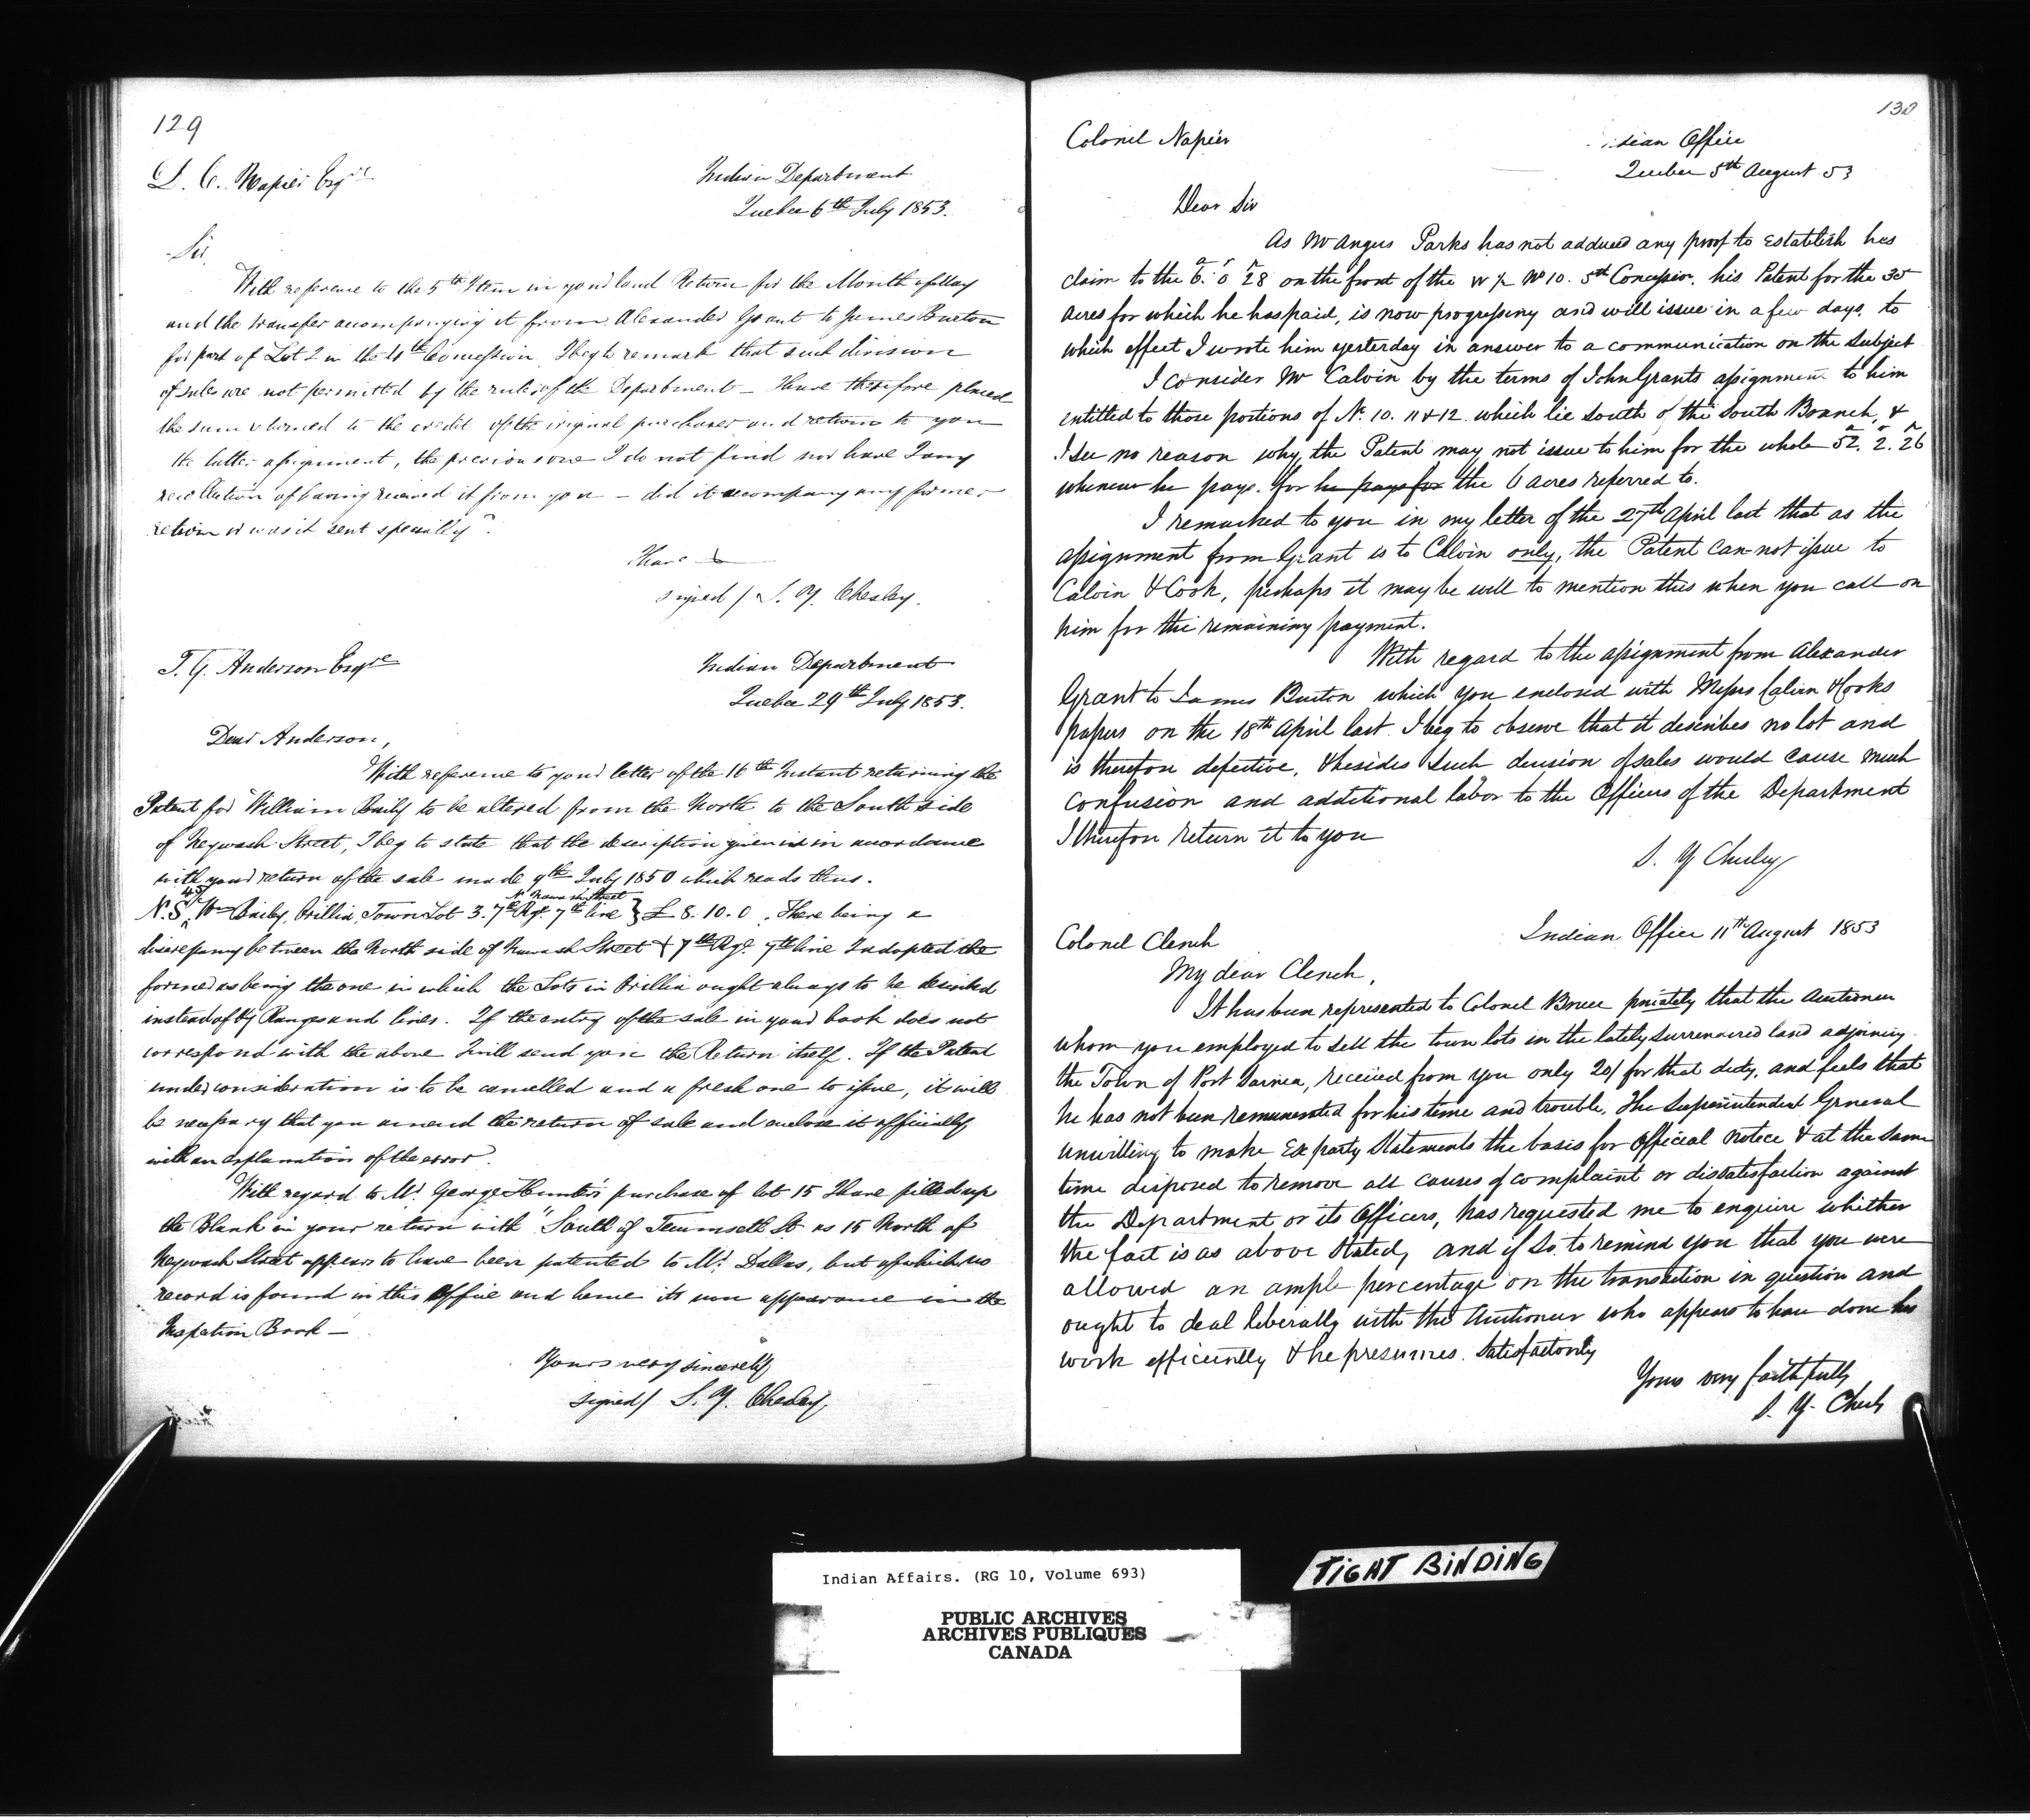 129
D. C. Napier Esqre
Indian Department
Quebec 6th July 1853.
Sir,
With reference to the 5th Item in your land Return for the Month of May
and the transfer accompanying it from Alexander Grant to James Burton
for part of Lot 2 in the 4th Concession I beg to remark that such division
of sales are not permitted by the rules of the Department – I have therefore placed
the sum returned to the credit of the original purchaser and return to you
the latter assignment, the previous one I do not find nor have I any
recollection of having received it from you – did it accompany any former
return or was it sent specially?
I have
signed / S. Y. Chesley.
T. G. Anderson Esqre
Indian Department
Quebec 29th July 1853.
Dear Anderson,
With reference to your letter of the 16th Instant returning the
Patent for William Baily to be altered from the North to the South side
of Neywash Street, I beg to state that the description given is in accordance
with your return of the sale made 9th July 1850 which reads thus.
N. S. Wm Baily, Orillia, Town Lot 3. 7th Rge. 7th line } £ 8. 10. 0. There being a
discrepancy between the North side of Nawash Street & 7th Rge. 7th line I adopted the
former as being the one in which the Lots in Orillia ought always to be described
instead of by Ranges and lines. If the entry of the sale in your book does not
correspond with the above I will send you the Return itself. If the Patent
under consideration is to be cancelled and a fresh one to issue, it will
be necessary that you amend the return of sale and enclose it officially
with an explanation of the error.
With regard to Mr. George Hunter's purchase of lot 15 I have filled up
the Blank in your return with "South of Tecumseth St as 15 North of
Neywash Street appears to have been patented to Mr. Dallas, but of which no
record is found in this Office and hence its non appearance in the
Inspection Book –
Yours very sincerely
signed / S. Y. Chesley
130
Colonel Napier
Indian Office
Quebec 5th August 53
Dear Sir
As Mr Angus Parks has not adduced any proof to establish his
claim to the 6. 0 28 on the front of the W ½ No 10. 5th Concession. his Patent for the 35
acres for which he has paid, is now progressing and will issue in a few days, to
which effect I wrote him yesterday in answer to a communication on the subject
I consider Mr Calvin by the terms of John Grants assignment to him
entitled to those portions of No. 10. 11 & 12. which lie South of the South Branch, &
I see no reason why, the Patent may not issue to him for the whole 52. 2. 26
whenever he pays. for he pays for the 6 acres referred to.
I remarked to you in my letter of the 27th April last that as the
assignment from Grant is to Calvin only, the Patent can not issue to
Calvin & Cook, perhaps it may be well to mention this when you call on
him for the remaining payment.
With regard to the assignment from Alexander
Grant to James Burton which you enclosed with Messrs Calvin & Cooks
papers on the 18th April last. I beg to observe that it describes no lot and
is therefore defective, & besides such division of sales would cause much
confusion and additional labor to the Officers of the Department
I therefore return it to you
S. Y Chesley
Colonel Clench
Indian Office 11th August 1853
My dear Clench,
It has been represented to Colonel Bruce privately that the Auctioneer
whom you employed to sell the town lots in the lately surrendered land adjoining
the Town of Port Sarnia, received from you only 20/ for that duty, and feels that
he has not been remunerated for his time and trouble. The Superintendent General
unwilling to make Ex party Statements the basis for Official notice & at the same
time disposed to remove all causes of complaint or dissatisfaction against
the Department or its Officers, has requested me to enquire whether
the fact is as above stated, and if so. to remind you that you were
allowed an ample percentage on the transaction in question and
ought to deal liberally with the Auctioneer who appears to have done his
work efficiently & he presumes. Satisfactorily
Yours very faithfully
S. Y. Chesly
Indian Affairs. (RG 10, Volume 693)
PUBLIC ARCHIVES
ARCHIVES PUBLIQUES
CANADA
TIGHT BINDING